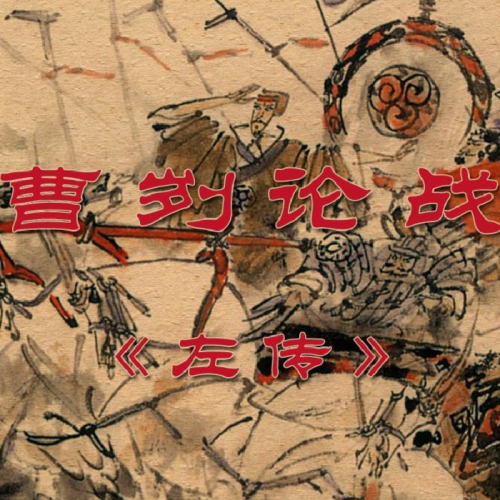 曹刿论战
《左传》